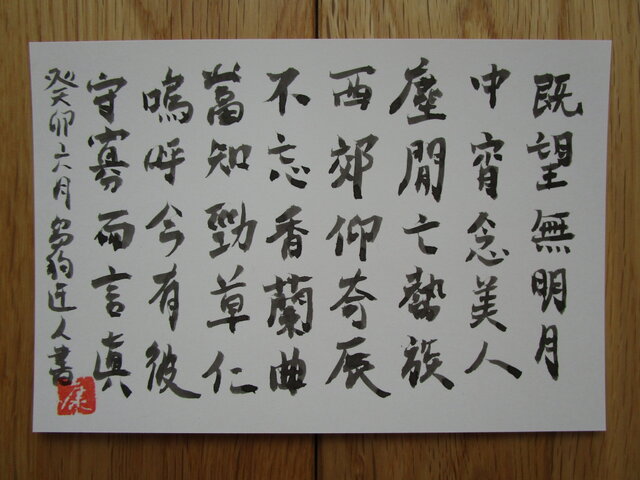 既望無明月
中宵念美人
塵閒亡勢族
西郊仰奇辰
不忘香蘭曲
當知勁草仁
嗚呼今有彼
守寡而言真
癸卯六月芻狗匠人書
康